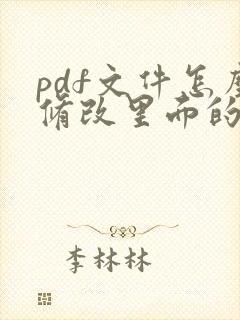 pdf文件怎麽
修改里而的
李林林